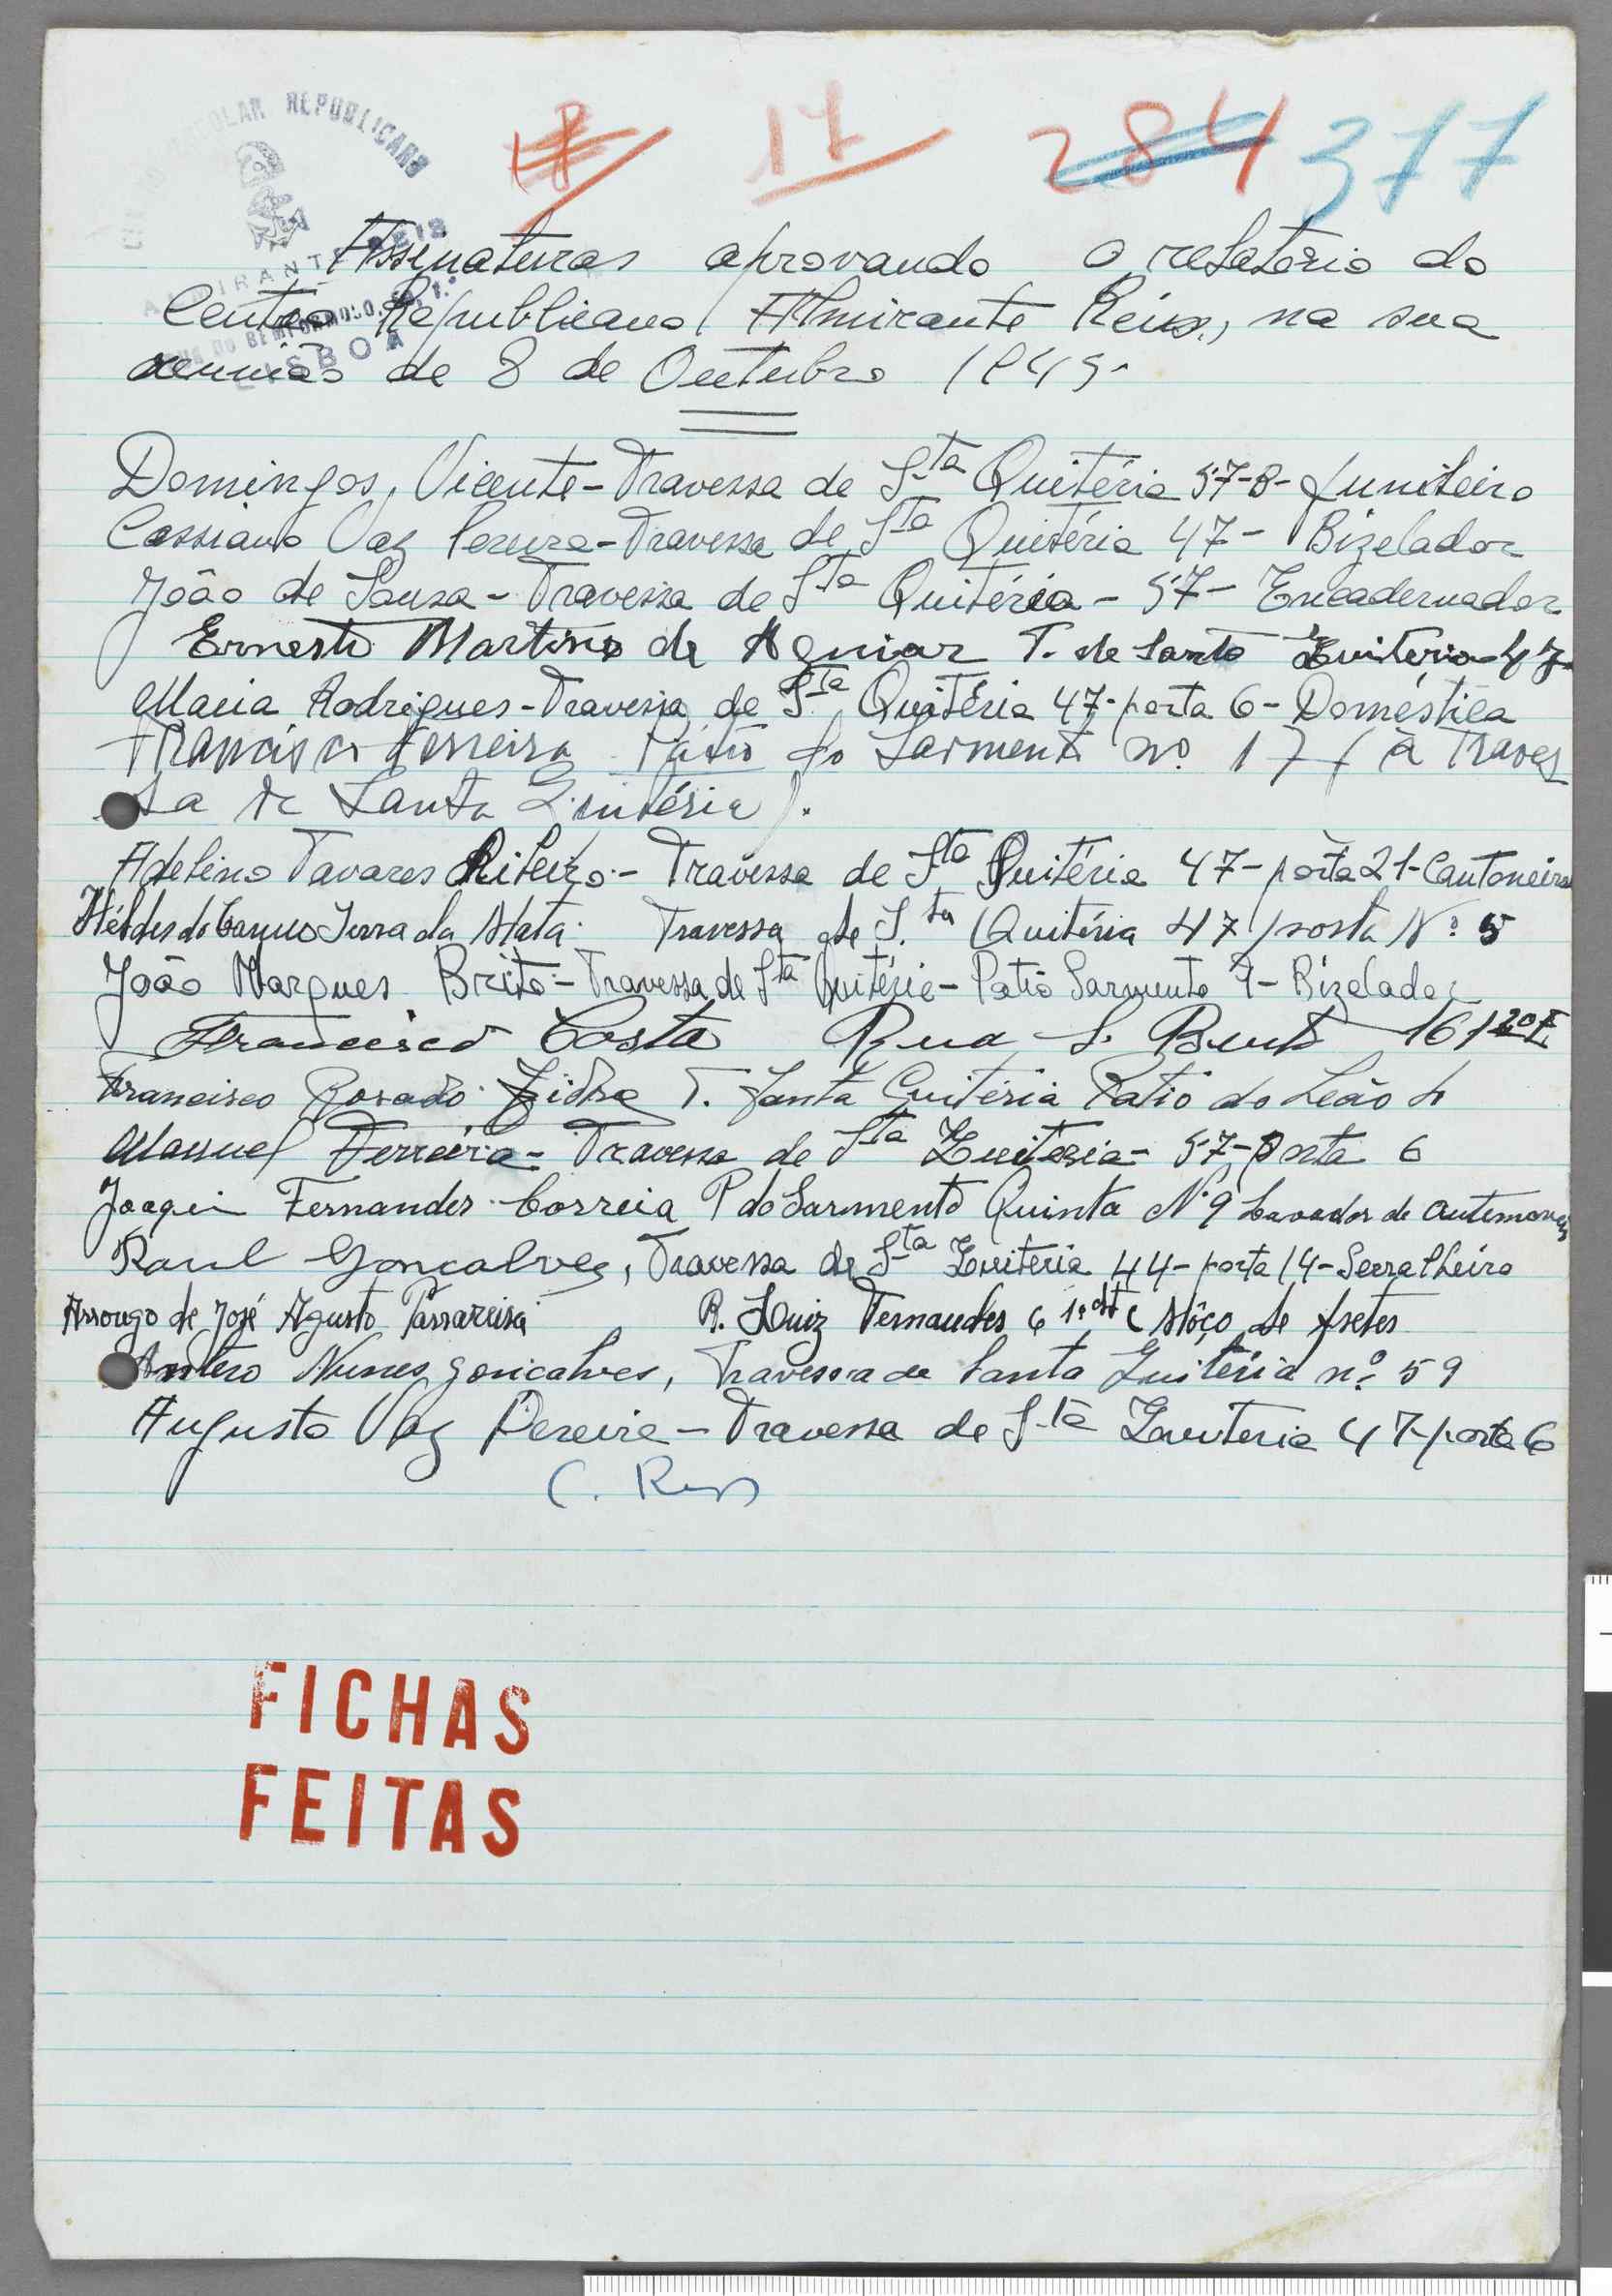 17 17 284 377
ESCOLAR REPUBLICANO
ALMIRANTE REIS
RUA DO BEMFORMOSO, 50, 1.º
LISBOA
Assinaturas aprovando o relatório do
Centro Republicano Almirante Reis, na sua
reunião de 8 de Outubro 1945.
Domingos Vicente - Travessa de Sta Quitéria 57-B - funileiro
Cassiano Vaz Pereira - Travessa de Sta Quitéria 47 - Bizelador
João de Sousa - Travessa de Sta Quitéria - 57 - Encadernador
Ernesto Martins de Aguiar T. de Santa Quiteria 47
Maria Rodrigues - Travessa de Sta Quitéria 47 - porta 6 - Doméstica
Francisco Ferreira Pátio do Sarmento nº 17 (à Traves
sa de Santa Quitéria).
Adelino Tavares Ribeiro - Travessa de Sta Quitéria 47 - porta 21 - Cantoneiro
Hélder do Carmo Serra da Mata. Travessa de S.ta Quitéria 47 porta Nº 5
João Marques Brito - Travessa de Sta Quitérie - Patio Sarmento 9 - Bizelador
Francisco Costa Rua S. Bento 161 2º E
Francisco Rosado T. Santa Quitéria Patio do Leão
Manuel Ferreira - Travessa de Sta Quitéria - 57 - Porta 6
Joaqui Fernandes Correia P do Sarmento Quinta Nº 9 Lavador de automoveis
Raul Gonçalves, Travessa de Sta Quiteria 44 - porta 14 - Serralheiro
Arrougo de José Agusto Passareisa R. Luiz Fernandes 6 1º dt Môço de fretes
Antero Nunes gonçalves, Travessa de Santa Quitéria nº 59
Augusto Vaz Pereira - Travessa de Sta Quiteria 47 - porta 6
FICHAS
FEITAS